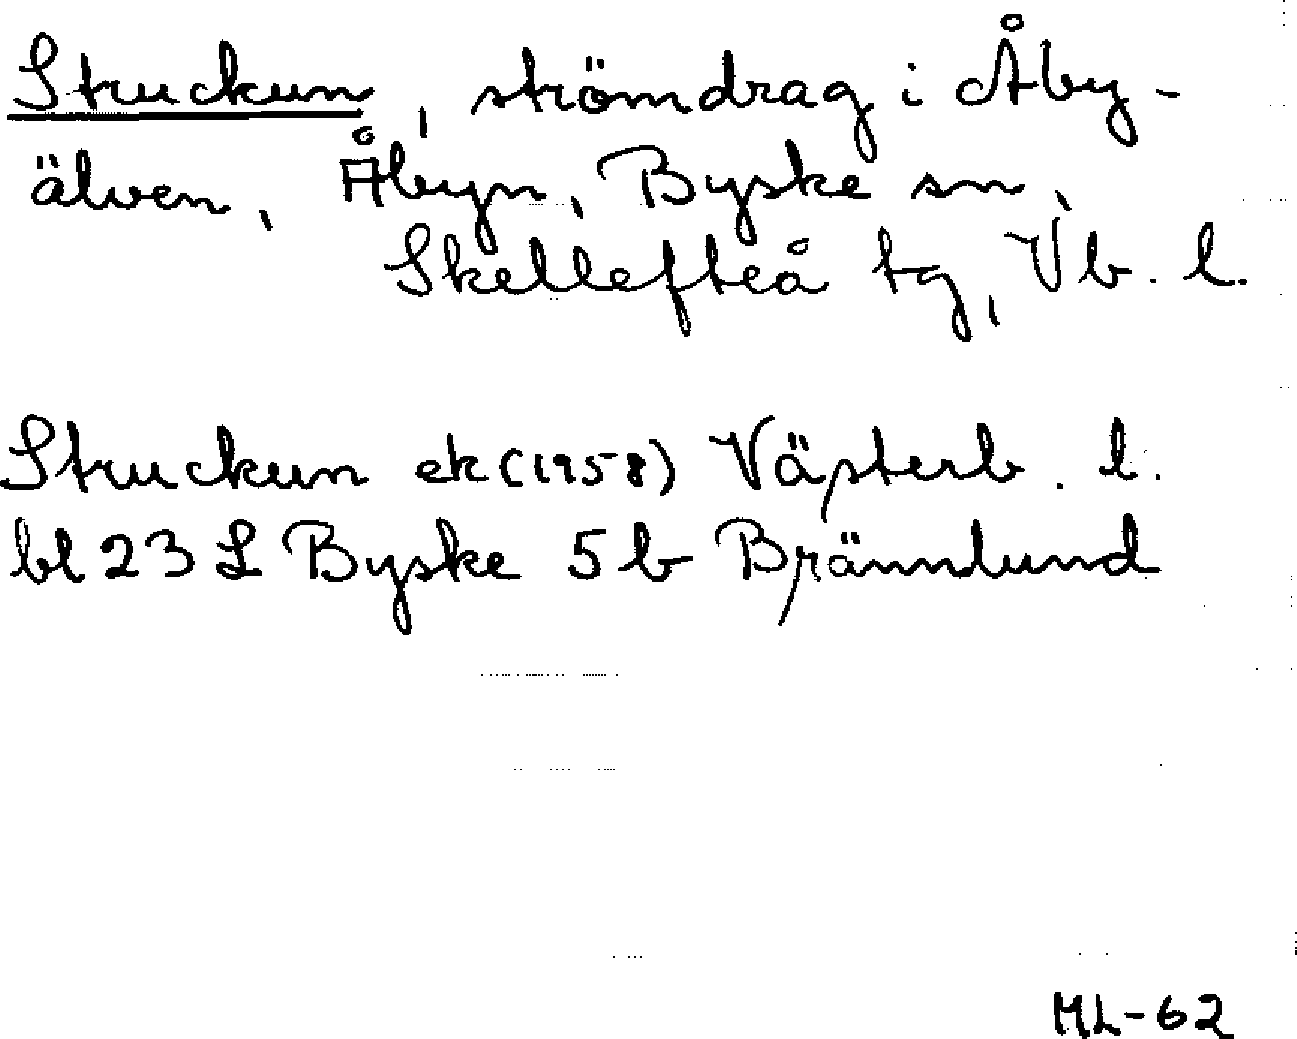 Struckun, strömdrag i Åby-
älven, Åbyn, Byske sn,
Skellefteå tg, Vb. l.
Struckun ek (1958) Västerb. l.
bl 23 L Byske 5 b Brännlund
ML-62